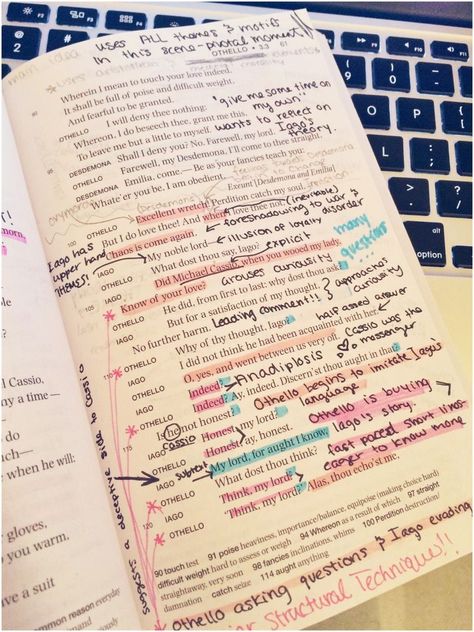 USES ALL THEMES & MOTIFS
IN THIS SCENE - PIVOTAL MOMENT!
OTHELLO • 3.3 61
Wherein I mean to touch your love indeed,
It shall be full of poise and difficult weight,
And fearful to be granted.
OTHELLO I will deny thee nothing:
"give me some time on my own"
Whereon, I do beseech thee, grant me this,
To leave me but a little to myself.
wants to reflect on Iago's theory.
DESDEMONA Shall I deny you? No. Farewell, my lord.
OTHELLO Farewell, my Desdemona, I'll come to thee straight.
DESDEMONA Emilia, come.— Be as your fancies teach you:
Whate'er you be, I am obedient.
Exeunt [Desdemona and Emilia]
oxymoron
OTHELLO Excellent wretch! Perdition catch my soul,
But I do love thee! And when I love thee not, (inevitable)
Chaos is come again. foreshadowing to war & disorder
Iago has upper hand
THEMES!
IAGO My noble lord - illusion of loyalty
OTHELLO What dost thou say, Iago? explicit
IAGO Did Michael Cassio, when you wooed my lady,
Know of your love? arouses curiosity
many questions
OTHELLO He did, from first to last: why dost thou ask?
IAGO But for a satisfaction of my thought,
No further harm. leading comment!!! approaches curiosity
OTHELLO Why of thy thought, Iago? half assed answer
IAGO I did not think he had been acquainted with her.
Cassio was the messenger
OTHELLO O, yes, and went between us very oft.
IAGO Indeed? Anadiplosis
OTHELLO Indeed? Ay, indeed. Discern'st thou aught in that?
Othello begins to imitate Iago's language
115 Is he not honest?
cassio
IAGO Honest, my lord?
OTHELLO Honest? Ay, honest.
Othello is buying Iago's story.
IAGO subtle! My lord, for aught I know.
OTHELLO What dost thou think?
fast paced short lines
eager to know more
120 IAGO Think, my lord?
OTHELLO 'Think, my lord?' Alas, thou echo'st me,
suggests a deceptive side to Cassio
90 touch test 91 poise heaviness, importance/balance, equipoise (making choice hard)
difficult weight hard to assess or weigh 94 Whereon as a result of which 97 straight
straightaway, very soon 98 fancies inclinations, whims 100 Perdition destruction/
damnation catch seize 114 aught anything
Othello asking questions & Iago evading
Structural Technique!!
morn.
Cassio,
any a time—
when he will:
gloves,
p you warm.
ve a suit
common reason everyday